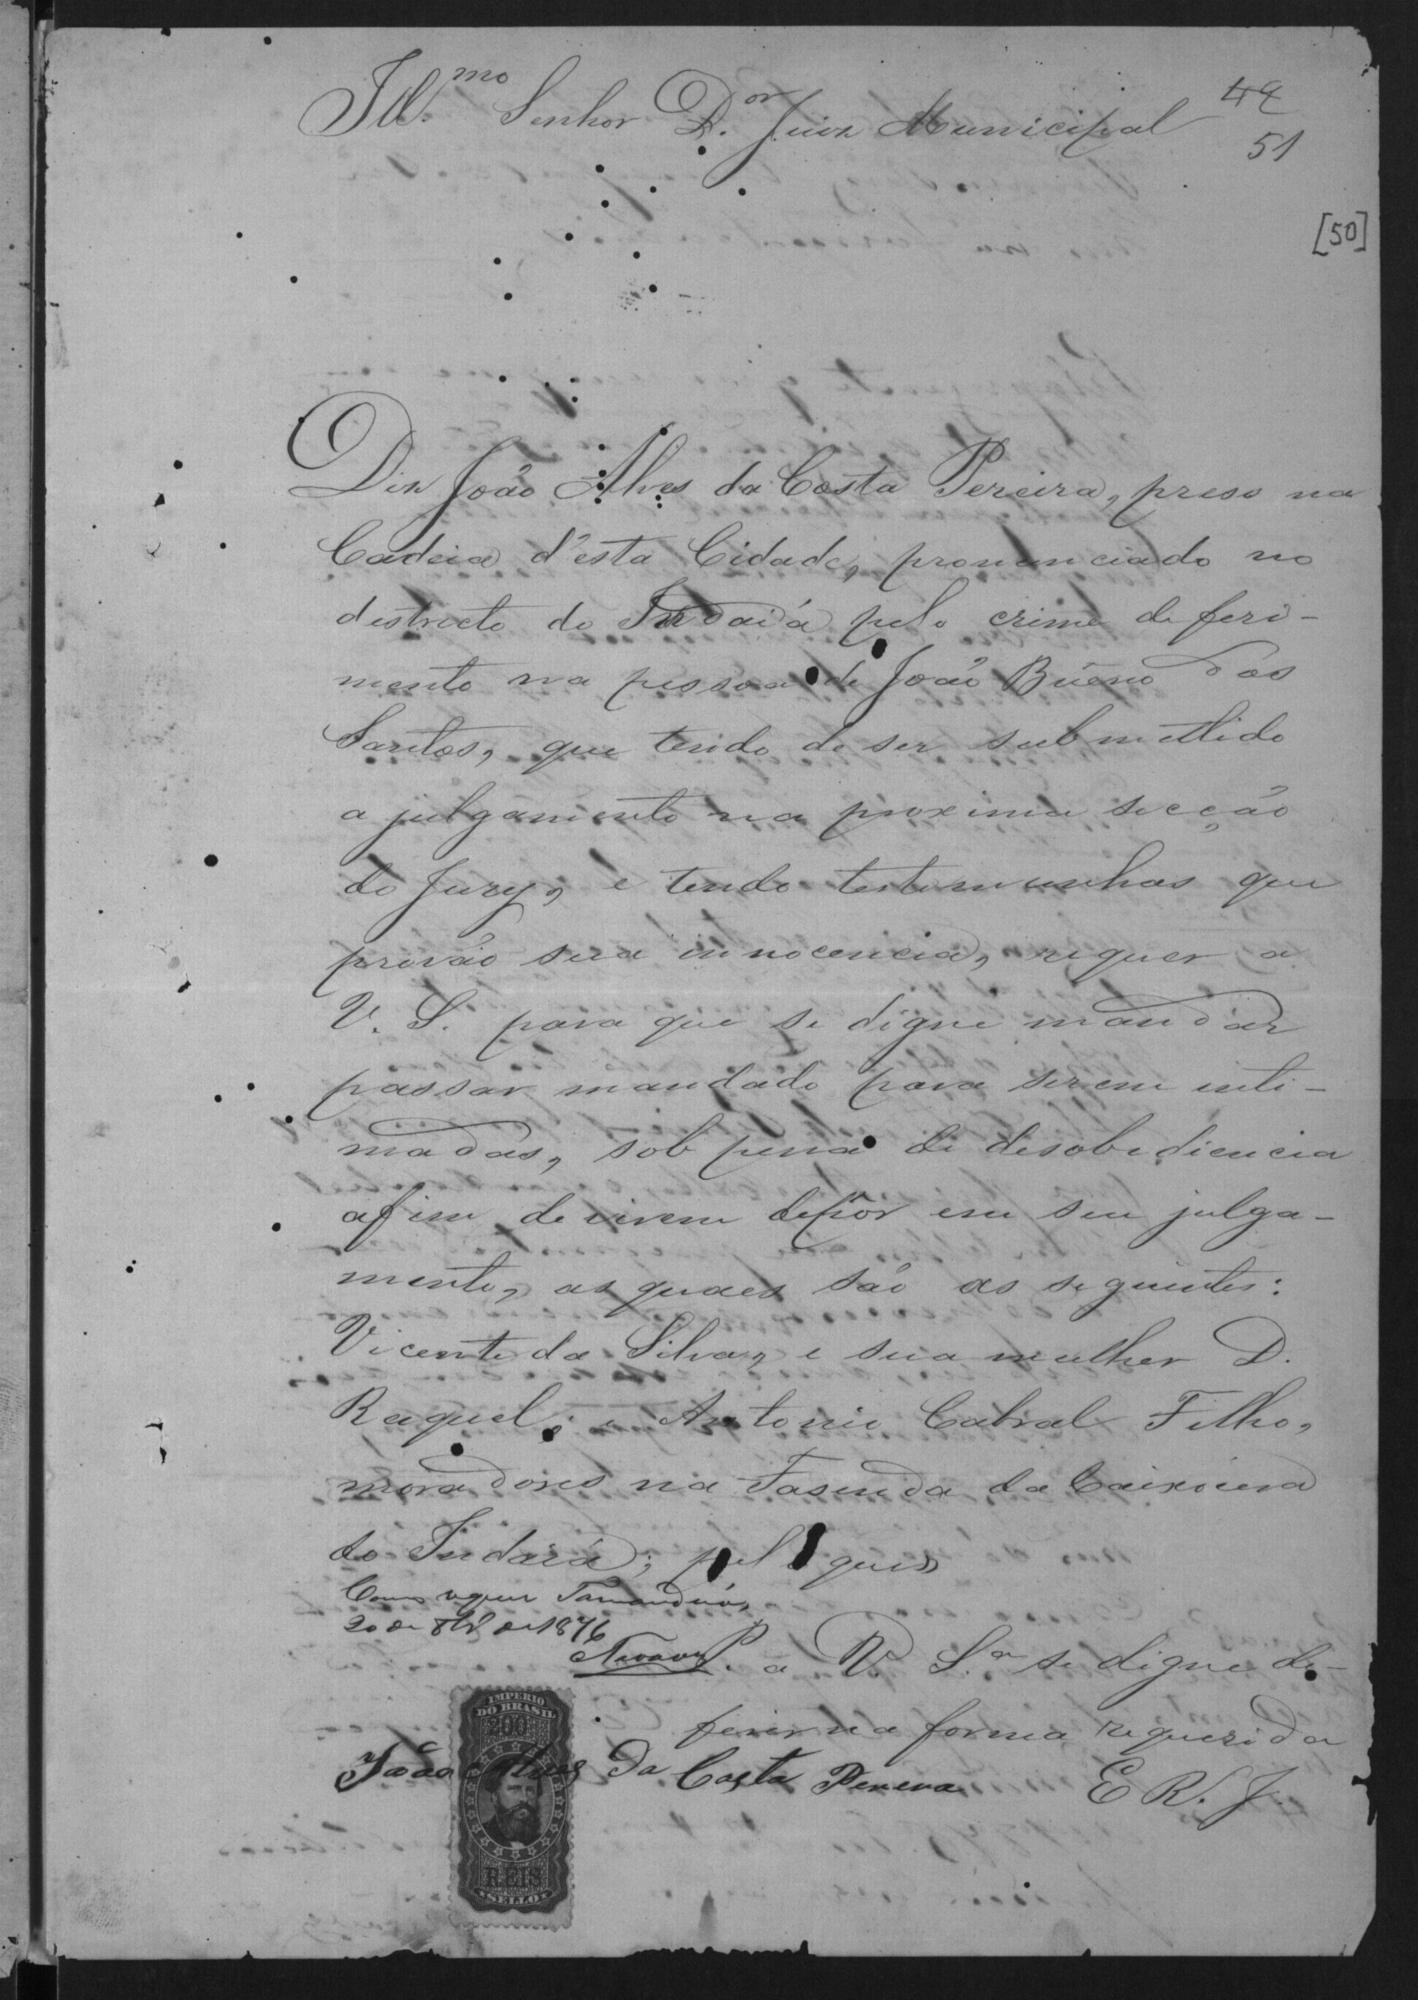 Ill.mo Senhor D.or Juiz Municipal
49
51
[50]
Diz João Alves da Costa Pereira, preso na
Cadeia d'esta Cidade, pronunciado no
destricto do Indaiá pelo crime de feri-
mento na pessoa de João Bueno dos
Santos, que tendo de ser submettido
a julgamento na proxima secção
do Jury, e tendo testemunhas que
provão sua innocencia, requer a
V. S. para que se digne mandar
passar mandado para serem inti-
madas, sob pena de desobediencia
afim de virem depôr em seu julga-
mento, as quaes são as seguintes:
Vicente da Silva, e sua mulher D.
Raquel; e Antonio Cabral Filho,
moradores na Fasenda da Caixoeira
do Indaiá; pelo que
Como requer Tamanduá,
20 de 8br.º de 1876
P. a V. S.a se digne de-
ferir na forma requerida
IMPERIO
DO BRASIL
200
João Alves da Costa Pereira
E R. J.
REIS
SELLO